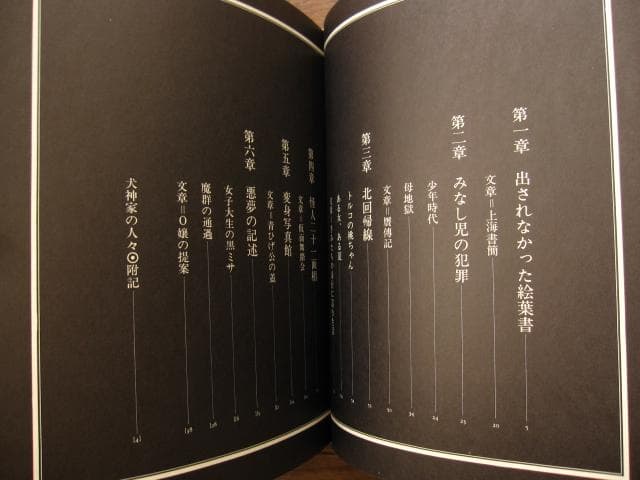 第一章 出されなかった絵葉書 5
文章=上海書簡 20
第二章 みなし児の犯罪 23
少年時代 24
母地獄
文章=贋傳記
第三章 北回帰線
トルコの桃ちゃん
ある女、ある夏
第四章 怪人二十一面相
文章=仮面舞踏会
第五章 変身写真館
文章=青ひげ公の蓋
第六章 悪夢の記述
女子大生の黒ミサ
魔群の通過
文章=O嬢の提案
犬神家の人々◉附記 141